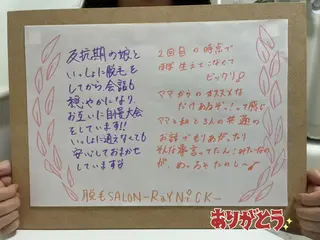 反抗期の娘と
いっしょに脱毛を
してから会話も
穏やかになり
お互いに自慢大会
をしています!!
いっしょに通えなくても
安心しておまかせ
しています
2回目の時点で
毛が生えてこなくて
ビックリ♪
ママからのオススメな
だけあるぞっ!って感じ
ママと私と3人の共通の
お話でもりあがったり
そんな事言ってたん!みたいなのが
めっちゃたのしー♪
脱毛SALON-RaYNiCK-
ありがとう